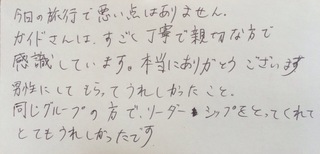 今日の旅行で悪い点はありません.
ガイドさんは、すごく丁寧で親切な方で
感識しています。本当にありがとうございます
男性にしてもらってうれしかったこと.
同じグループの方で、リーダーシップをとってくれて
とてもうれしかったです